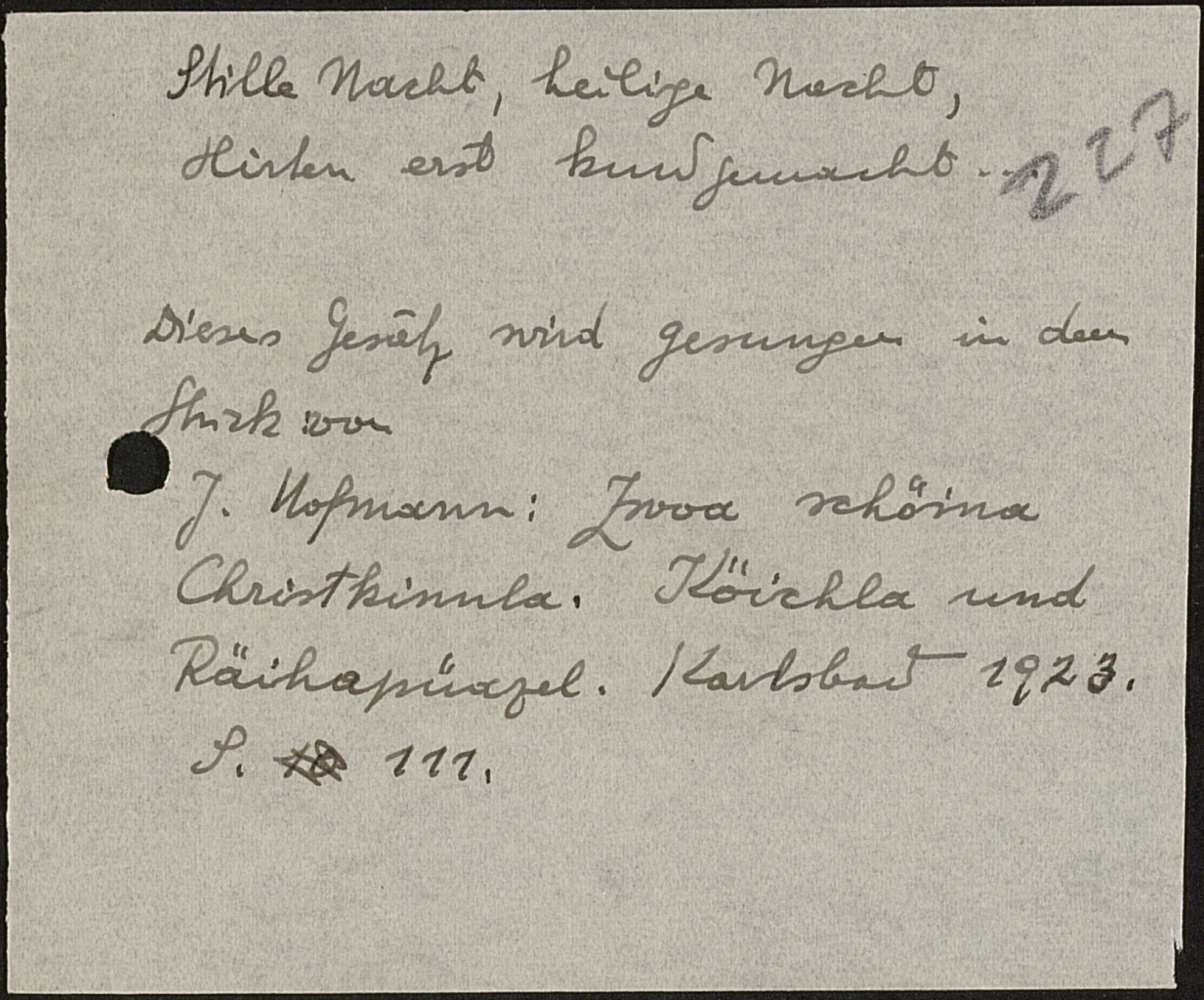 Stille Nacht, heilige Nacht,
Hirten erst kundgemacht...
227
Dieses Gesätz wird gesungen in dem
Stück von
J. Hofmann: Zwoa schöina
Christkinnla. Köichla und
Räihapüazel. Karlsbad 1923.
S. 111.